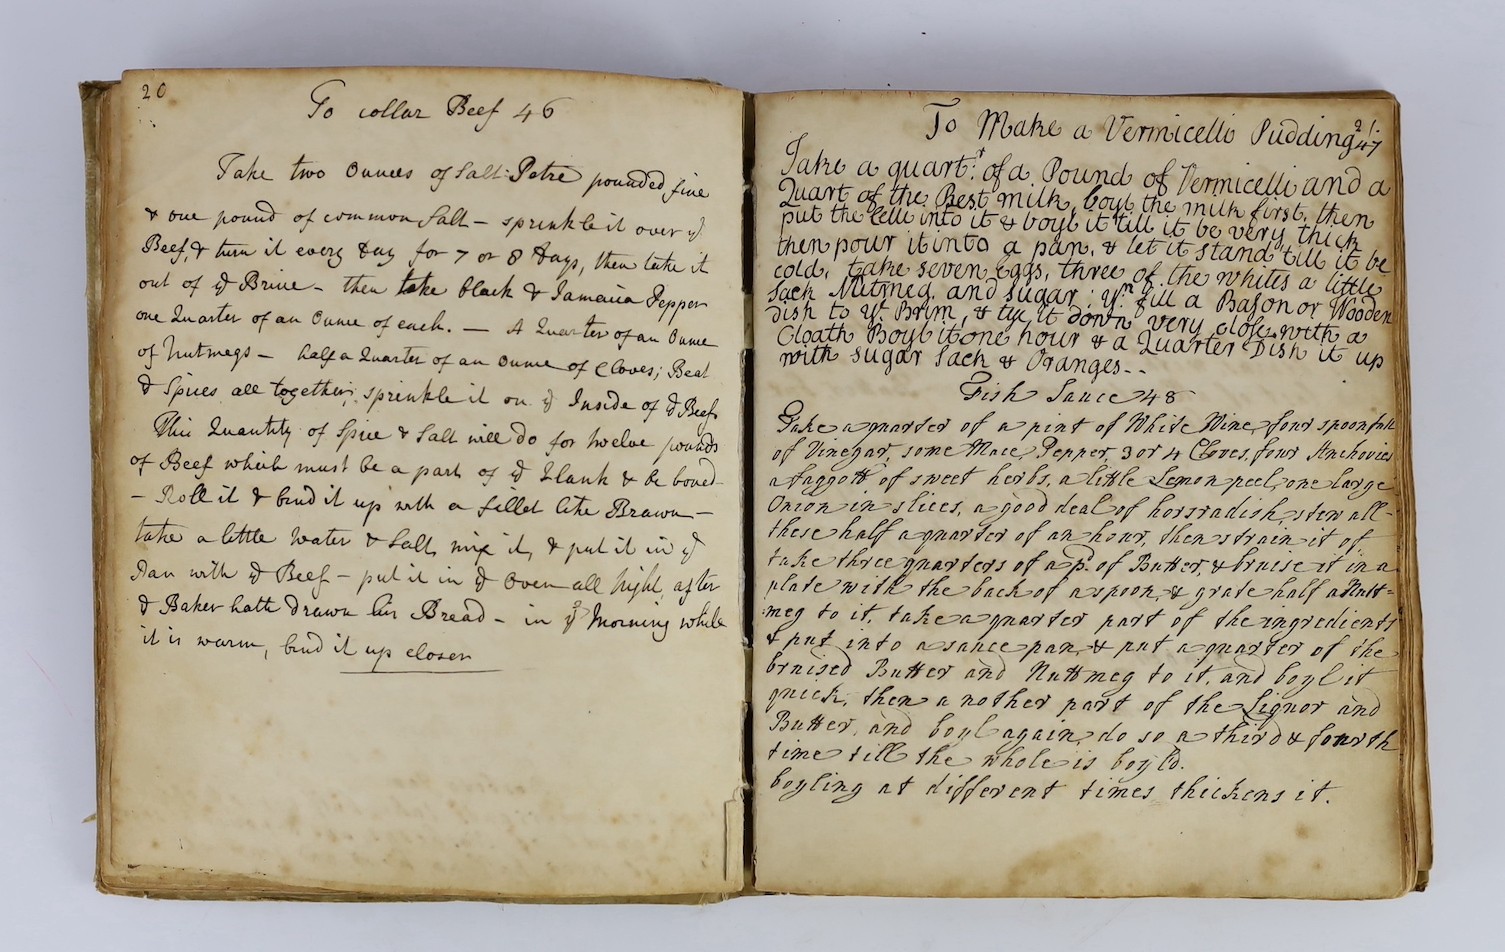 20
To collar Beef 46
Take two Ounces of Salt-Petre pounded fine
& one pound of common Salt – sprinkle it over ye
Beef, & turn it every day for 7 or 8 days, then take it
out of ye Brine – then take black & Jamaica Pepper
one Quarter of an Ounce of each. – A Quarter of an Ounce
of Nutmegs – half a Quarter of an Ounce of Cloves; Beat
ye Spices all together, sprinkle it on ye Inside of ye Beef
This Quantity of Spice & Salt will do for twelve pounds
of Beef which must be a part of ye Flank & be boned
– Roll it & bind it up with a fillet like Brawn –
take a little Water & Salt, mix it, & put it in ye
Pan with ye Beef – put it in ye Oven all Night, after
ye Baker hath drawn his Bread – in ye Morning while
it is warm, bind it up closer
21.
To Make a Vermicelli Pudding 47
Take a quartr: of a Pound of Vermicelli and a
Quart of the Best milk, boyl the milk first, then
put the Celli into it & boyl it till it be very thick
then pour it into a pan, & let it stand till it be
cold, take seven Eggs, three of the whites a little
Sack Nutmeg, and Sugar; yn fill a Bason or Wooden
Dish to ye Brim, & tye it down very close with a
Cloath Boyl it one hour & a Quarter Dish it up
with sugar Sack & Oranges--
Fish Sauce 48
Take a quarter of a pint of White Wine, four spoonfull
of Vinegar, some Mace, Pepper, 3 or 4 Cloves, four Anchovies
a faggott of sweet herbs, a little Lemon peel, one large
Onion in slices, a good deal of horsradish, stew all-
these half a quarter of an hour, then strain it of
take three quarters of a p:d of Butter, & bruise it in a
plate with the back of a spoon, & grate half a Nutt=
meg to it, take a quarter part of the ingredients
& put into a sauce pan, & put a quarter of the
bruised Butter and Nuttmeg to it, and boyl it
quick, then a nother part of the Liquor and
Butter, and boyl again, do so a third & fourth
time till the whole is boyl'd.
boyling at different times thickens it.